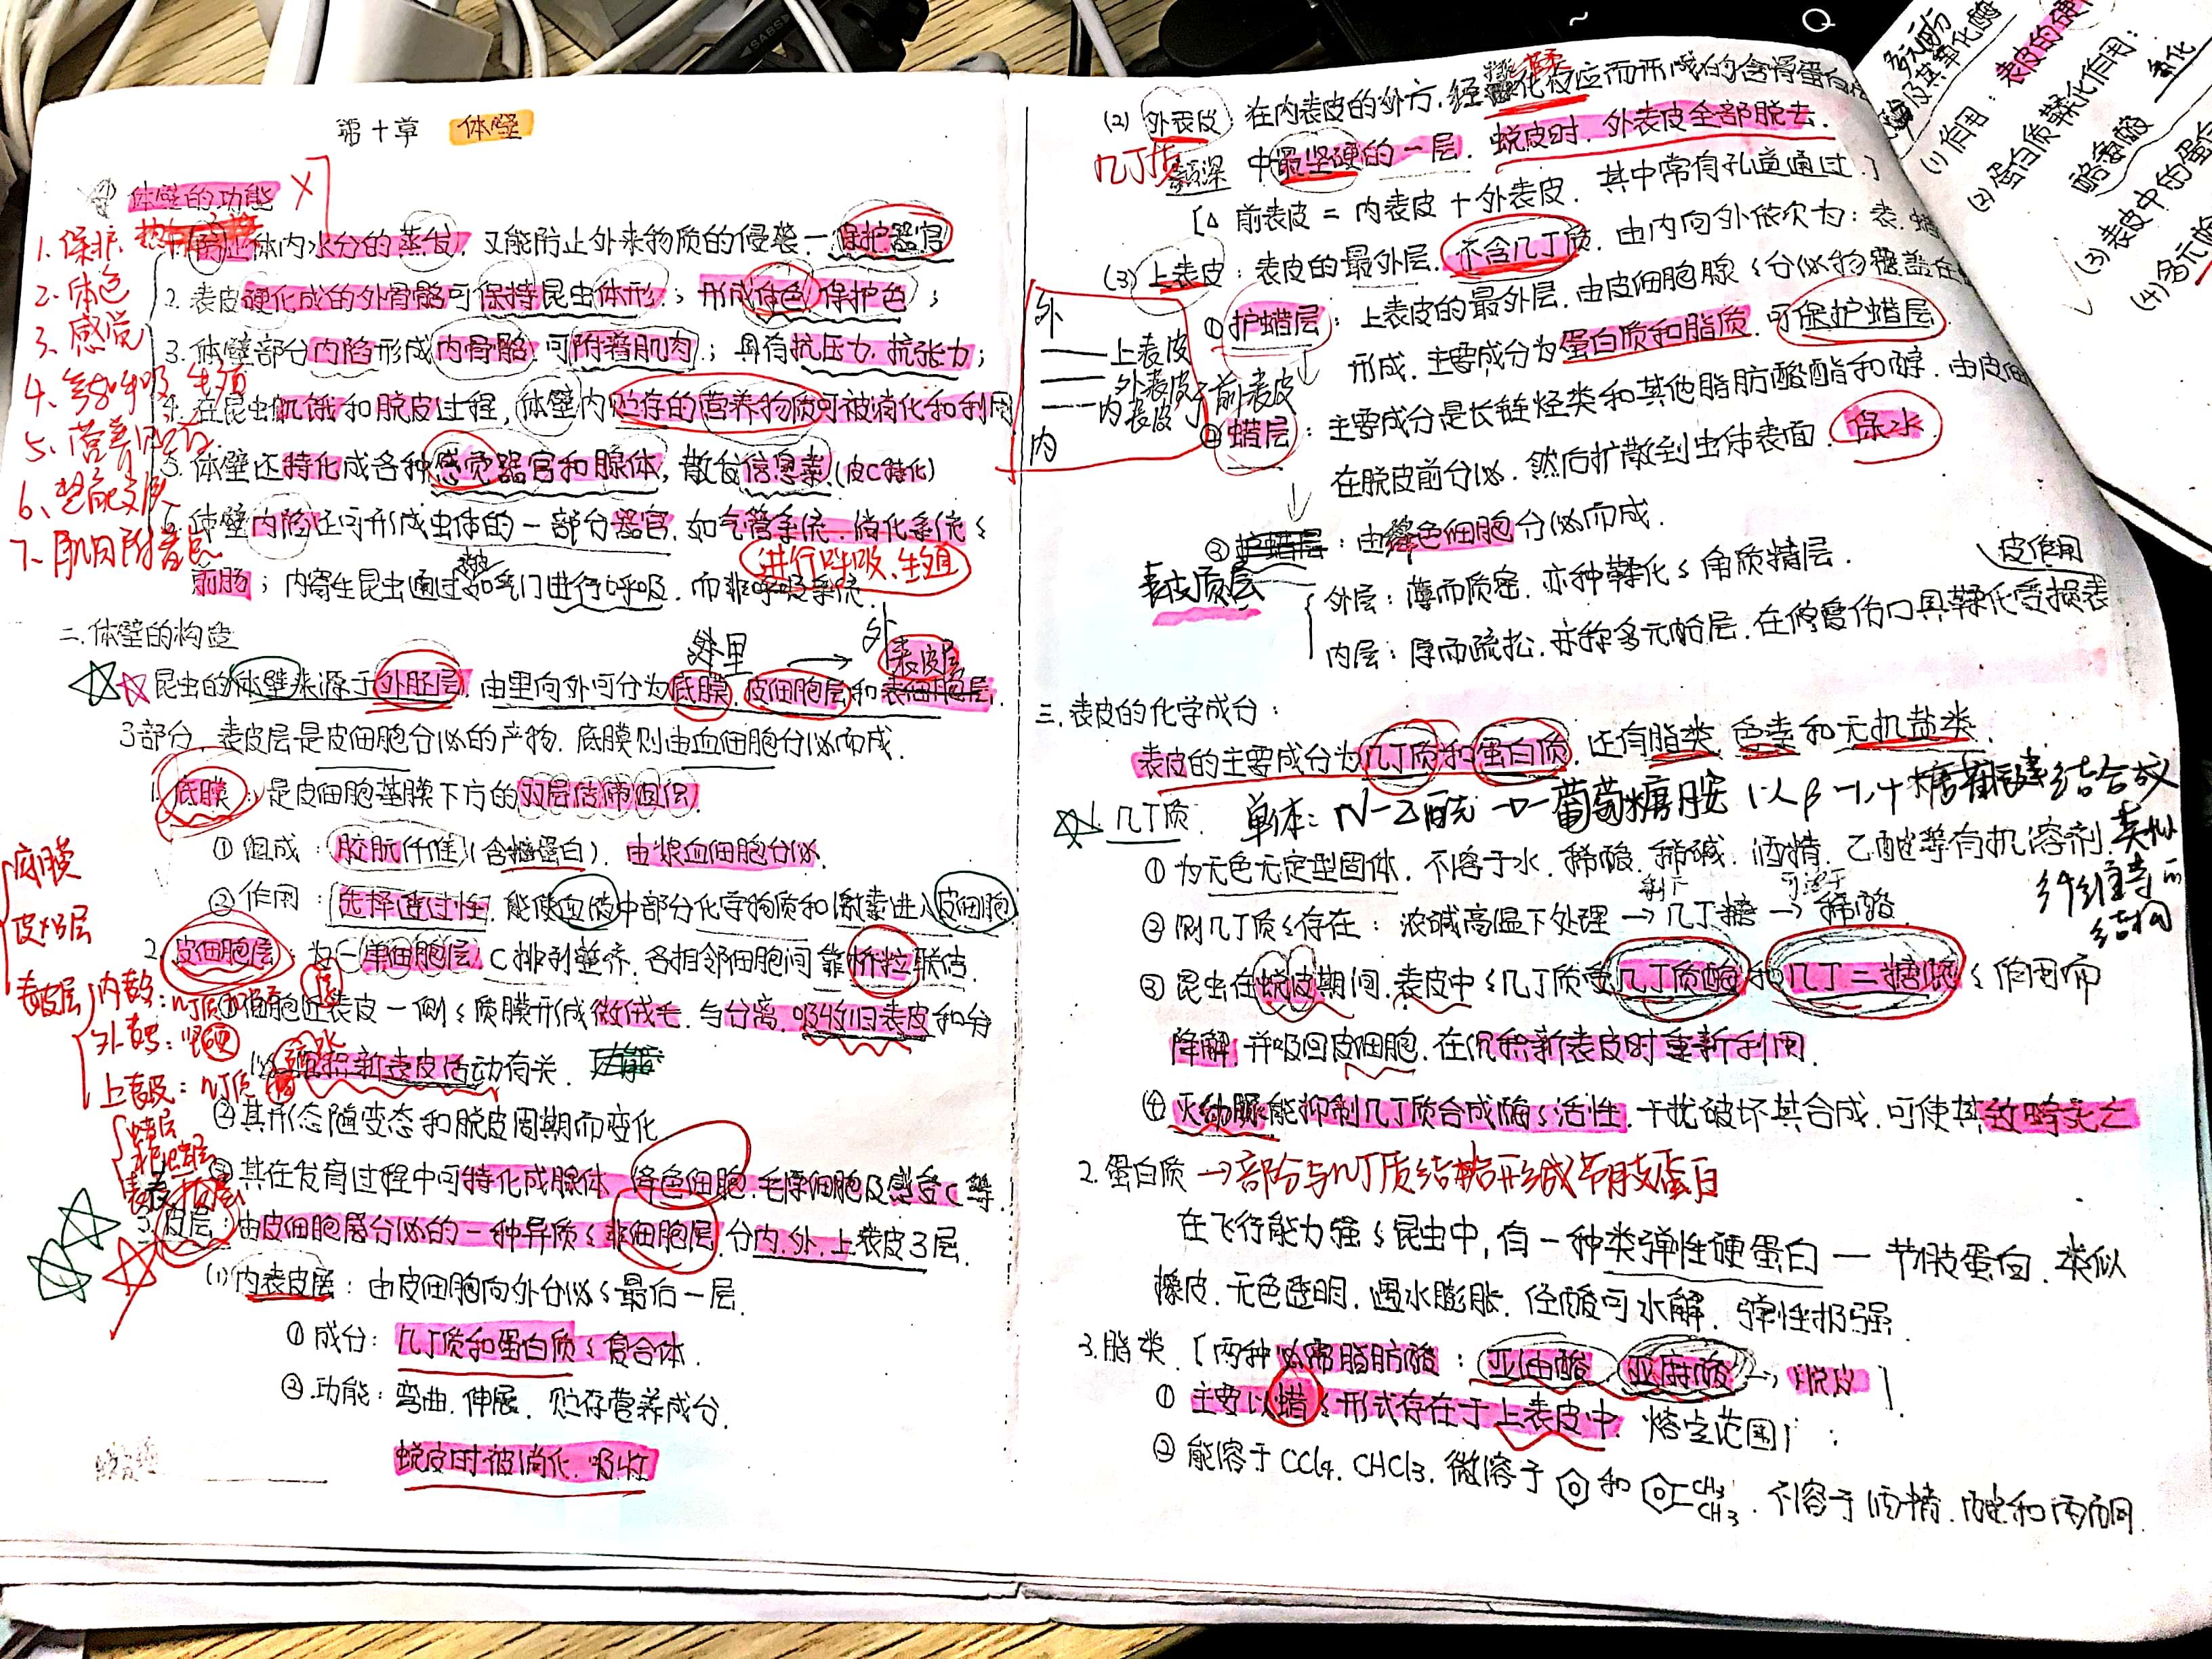 第十章 体壁
体壁的功能
1. 保护
2. 体色
3. 感觉
4. 呼吸 生殖
5. 营养贮存
6.
7. 肌肉附着点
1. 防止体内水分的蒸发, 又能防止外来物质的侵袭—保护器官
2. 表皮硬化成的外骨骼可保持昆虫体形; 形成体色 保护色;
3. 体壁部分内陷形成内骨骼, 可附着肌肉; 具有抗压力, 抗张力;
4. 在昆虫饥饿和脱皮过程, 体壁内贮存的营养物质可被消化和利用
5. 体壁还特化成各种感觉器官和腺体, 散发信息素 (皮C特化)
6. 体壁内陷还可形成虫体的一部分器官, 如气管系统 消化系统
进行呼吸、生殖
前肠; 内寄生昆虫通过 气门进行呼吸, 而非呼吸系统.
二. 体壁的构造
里 → 外
昆虫的体壁来源于外胚层, 由里向外可分为底膜, 皮细胞层和表皮层
3部分, 表皮层是皮细胞分泌的产物, 底膜则由血细胞分泌而成.
1. 底膜: 是皮细胞基膜下方的双层结缔组织.
① 组成: 胶原(纤维)(含糖蛋白), 由浆血细胞分泌.
② 作用: 选择通过性, 能使血液中部分化学物质和激素进入皮细胞
底膜
皮C层
表皮层
内表
外表: 坚硬
上表皮: 几丁质
蜡层
2. 皮细胞层: 为一单细胞层, C排列整齐, 各相邻细胞间靠桥粒联结.
①细胞近表皮一侧质膜形成微绒毛, 与分离, 吸收旧表皮和分
泌 沉积新表皮活动有关.
②其形态随变态和脱皮周期而变化
③其在发育过程中可特化成腺体 绛色细胞, 毛原细胞及感觉C等.
3. 皮层: 由皮细胞层分泌的一种异质非细胞层, 分内, 外, 上表皮3层.
(1) 内表皮层: 由皮细胞向外分泌最后一层.
① 成分: 几丁质和蛋白质复合体.
② 功能: 弯曲. 伸展. 贮存营养成分.
蜕皮时被消化. 吸收
(2) 外表皮: 在内表皮的外方, 经鞣化反应而形成的含骨蛋白
几丁质 色深 中最坚硬的一层. 蜕皮时. 外表皮全部脱去.
[△ 前表皮 = 内表皮 + 外表皮. 其中常有孔道通过.]
(3) 上表皮: 表皮的最外层, 不含几丁质, 由内向外依次为: 表. 蜡
外
上表皮
外表皮
内表皮
前表皮
内
① 护蜡层: 上表皮的最外层, 由皮细胞腺分泌物覆盖在
形成, 主要成分为蛋白质和脂质. 可保护蜡层.
② 蜡层: 主要成分是长链烃类和其他脂肪酸酯和醇, 由皮细
在脱皮前分泌, 然后扩散到虫体表面. 保水
③ 表皮质层: 由绛色细胞分泌而成.
外层: 薄而质密, 亦称鞣化角质精层.
内层: 厚而疏松, 亦称多元酚层. 在修复伤口具鞣化受损表
皮作用
三. 表皮的化学成分:
表皮的主要成分为几丁质和蛋白质, 还有脂类 色素和无机盐类.
1. 几丁质. 单体: N-乙酰-D-葡萄糖胺 以β-1,4糖苷键结合成
类似纤维素的结构
① 为无色无定型固体, 不溶于水. 稀酸. 稀碱. 酒精. 乙醚等有机溶剂.
② 测几丁质存在: 浓碱高温下处理 → 几丁糖 → 稀酸.
可溶于
③ 昆虫在蜕皮期间, 表皮中几丁质受几丁质酶和几丁二糖酶作用而
降解, 并吸回皮细胞, 在沉积新表皮时重新利用.
④ 灭幼脲能抑制几丁质合成酶活性, 干扰破坏其合成, 可使其致畸死亡
2. 蛋白质 → 部分与几丁质结合形成节肢蛋白
在飞行能力强昆虫中, 有一种类弹性硬蛋白 — 节肢蛋白, 类似
橡皮. 无色透明. 遇水膨胀. 经酸可水解. 弹性极强.
3. 脂类. [两种必需脂肪酸: 亚油酸, 亚麻酸 → 脱皮]
① 主要以蜡形式存在于上表皮中, 熔定范围广;
② 能溶于CCl4. CHCl3. 微溶于 和 CH3 CH3. 不溶于酒精. 醚和丙酮.
多元酚
及其氧化酶
(1) 作用: 表皮的硬
(2) 蛋白质鞣化作用:
酪氨酸
氧化
(3) 表皮中的蛋
(4) 多元